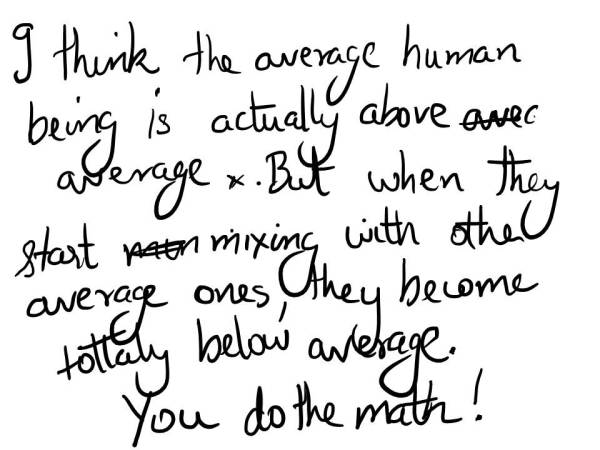 I think the average human
being is actually above avec
average x. But when they
start mixing with other
average ones, they become
tottaly below average.
You do the math!